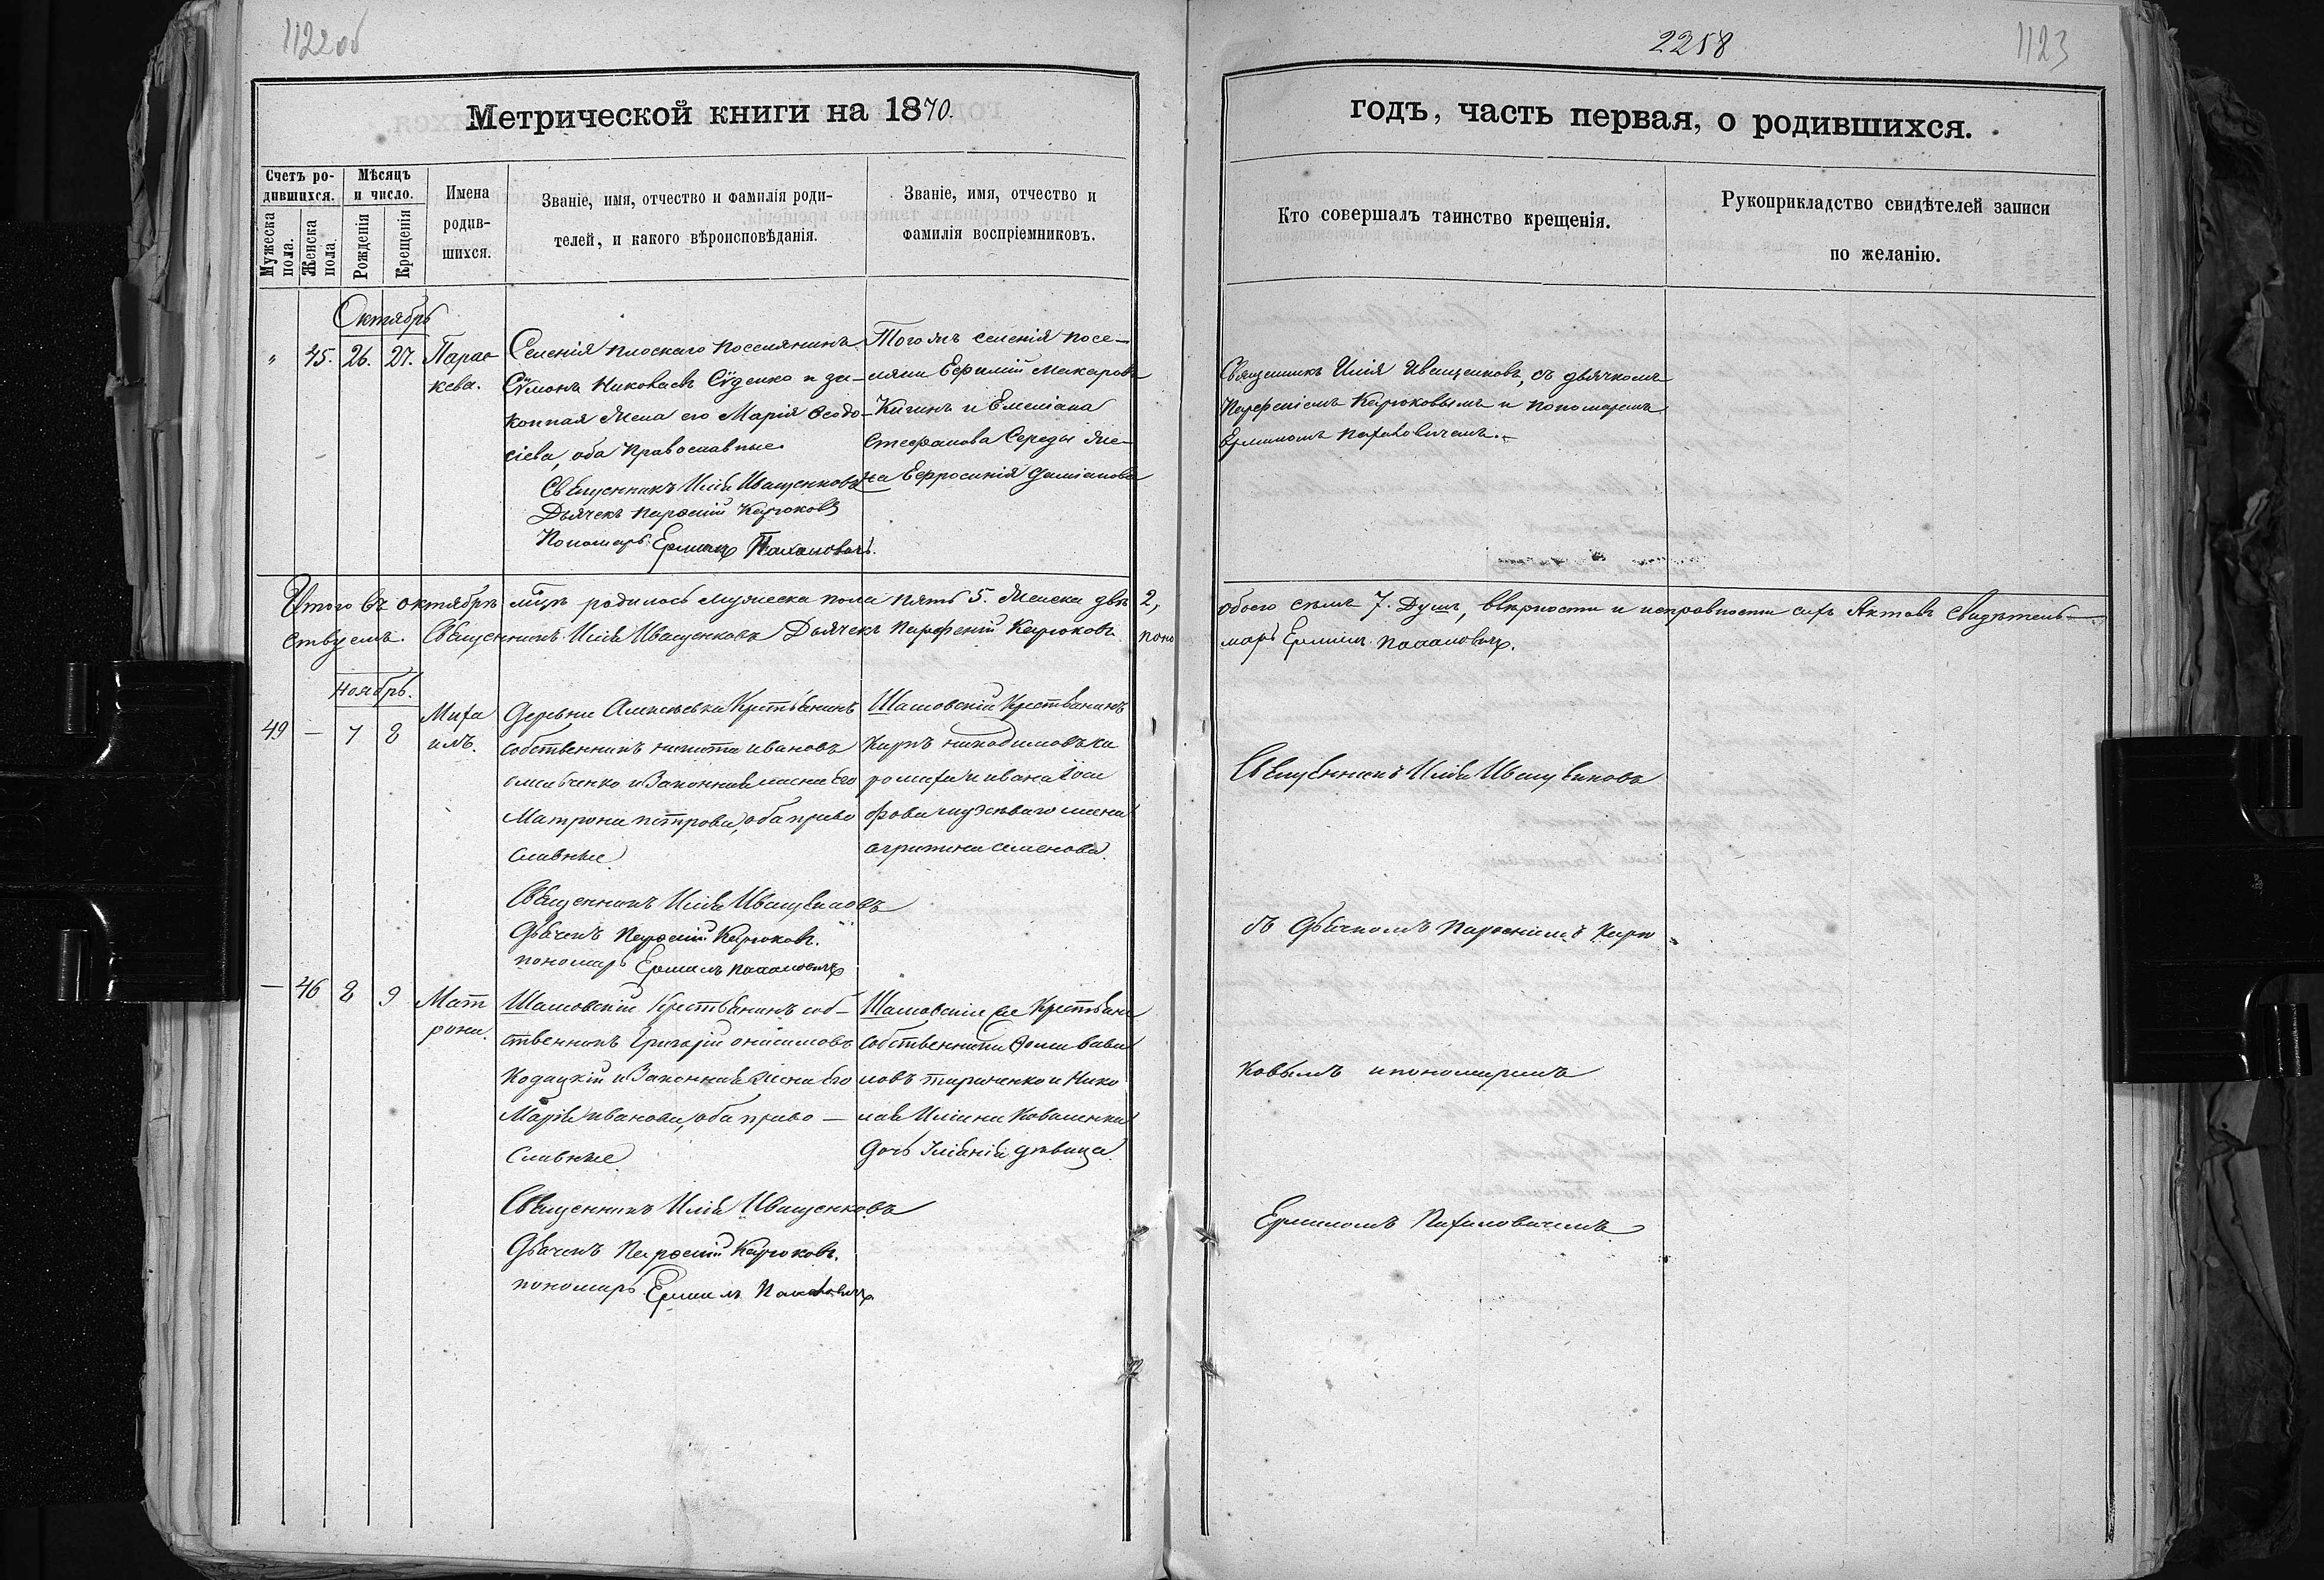 1122 об
2258
1123
Метрической книги на 1870.
годъ, часть первая, о родившихся.
Счетъ ро-
дившихся.
Мѣсяцъ
и число.
Мужеска
пола.
Женска
пола.
Рожденія
Крещенія
Имена
родив-
шихся.
Званіе, имя, отчество и фамилія роди-
телей, и какого вѣроисповѣданія.
Званіе, имя, отчество и
фамилія воспріемниковъ.
Кто совершалъ таинство крещенія.
Рукоприкладство свидѣтелей записи
по желанію.
Октябрь
" 45. 26. 27.
Парас
кева.
Селенія Плоскаго поселянинъ
Сѵмонъ Николаевъ и за-
конная жена его Марія Ѳеодо-
сіева, оба Православные
Священникъ Илія Иващенковъ
Дьячекъ Парѳеній Кирюковъ
Пономарь Ермилъ Пахаловичъ.
Тогожъ селенія посе-
ляни Ефимій Макаровъ
и Емеліана
Стефанова Середы же-
на Ефросинія Даміанова
Священникъ Илія Иващенковъ, съ дьячкомъ
Парфеніемъ Кирюковымъ и пономаремъ
Ермиломъ Пахаловичемъ.
Итого въ октябрѣ мцѣ родилось мужеска пола пять 5. женска двѣ 2,
обоего 7. Душъ, вѣрности и исправности сихъ Актовъ свидѣтель-
ствуемъ. Священникъ Илія Иващенковъ Дьячекъ Парфеній Кирюковъ поно
марь Ермилъ Пахаловичъ.
Ноябрь.
49 — 7 8
Миха
илъ.
Деревни Крестьянинъ
собственникъ Никита Ивановъ
и Законная жена Его
Матрона Петрова, оба право
славные
Священникъ Илія Иващенковъ
Дьячекъ Парѳеній Кирюковъ.
пономарь Ермилъ Пахаловичъ
Шамовскій Крестьянинъ
Карпъ Никодимовъ
и Ивана Іоси
фова жена
Агрипина Семенова.
Священникъ Илія Иващенковъ
съ Дьячкомъ Парѳеніемъ Кирю
— 46 8 9
Мат
рона.
Шамовскій Крестьянинъ соб-
ственникъ Григорій Онисимовъ
Кодацкій и Законная жена Его
Марія Иванова, оба право —
славные
Священникъ Илія Иващенковъ
Дьячекъ Парѳеній Кирюковъ.
пономарь Ермилъ Пахаловичъ
Шамовскіе Крестьяне
Собственники Ѳома Вави
ловъ и Нико
лая Ильина Коваленка
Дочь дѣвица
ковымъ и пономаремъ
Ермиломъ Пахаловичемъ